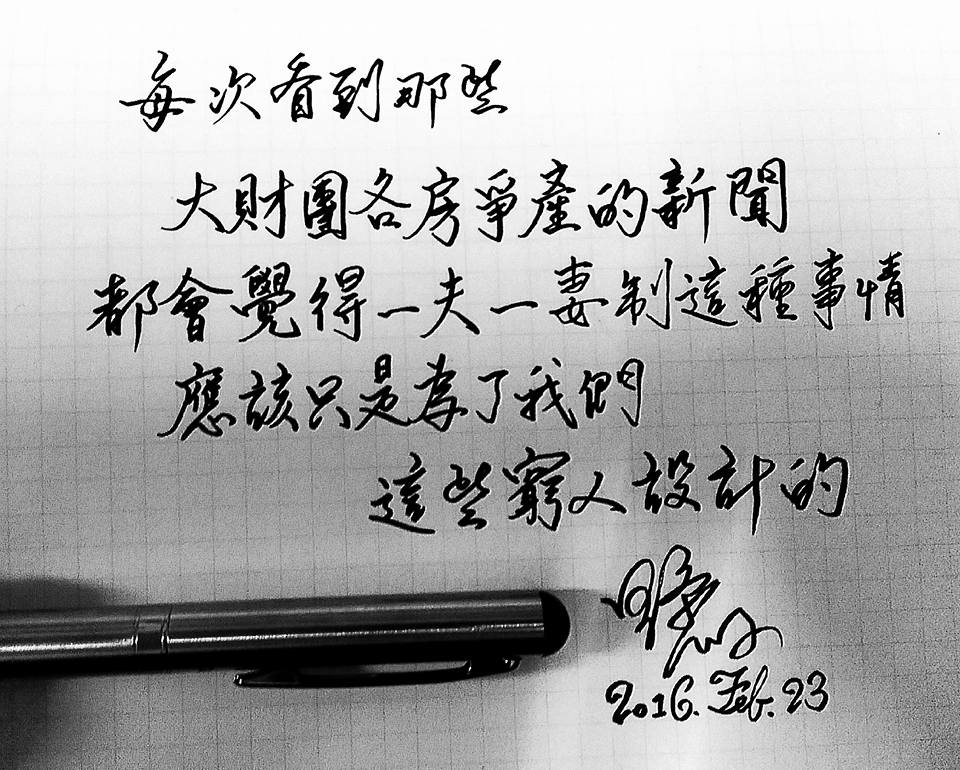 每次看到那些
大財團各房爭產的新聞
都會覺得一夫一妻制這種事情
應該只是為了我們
這些窮人設計的
2016. Feb. 23